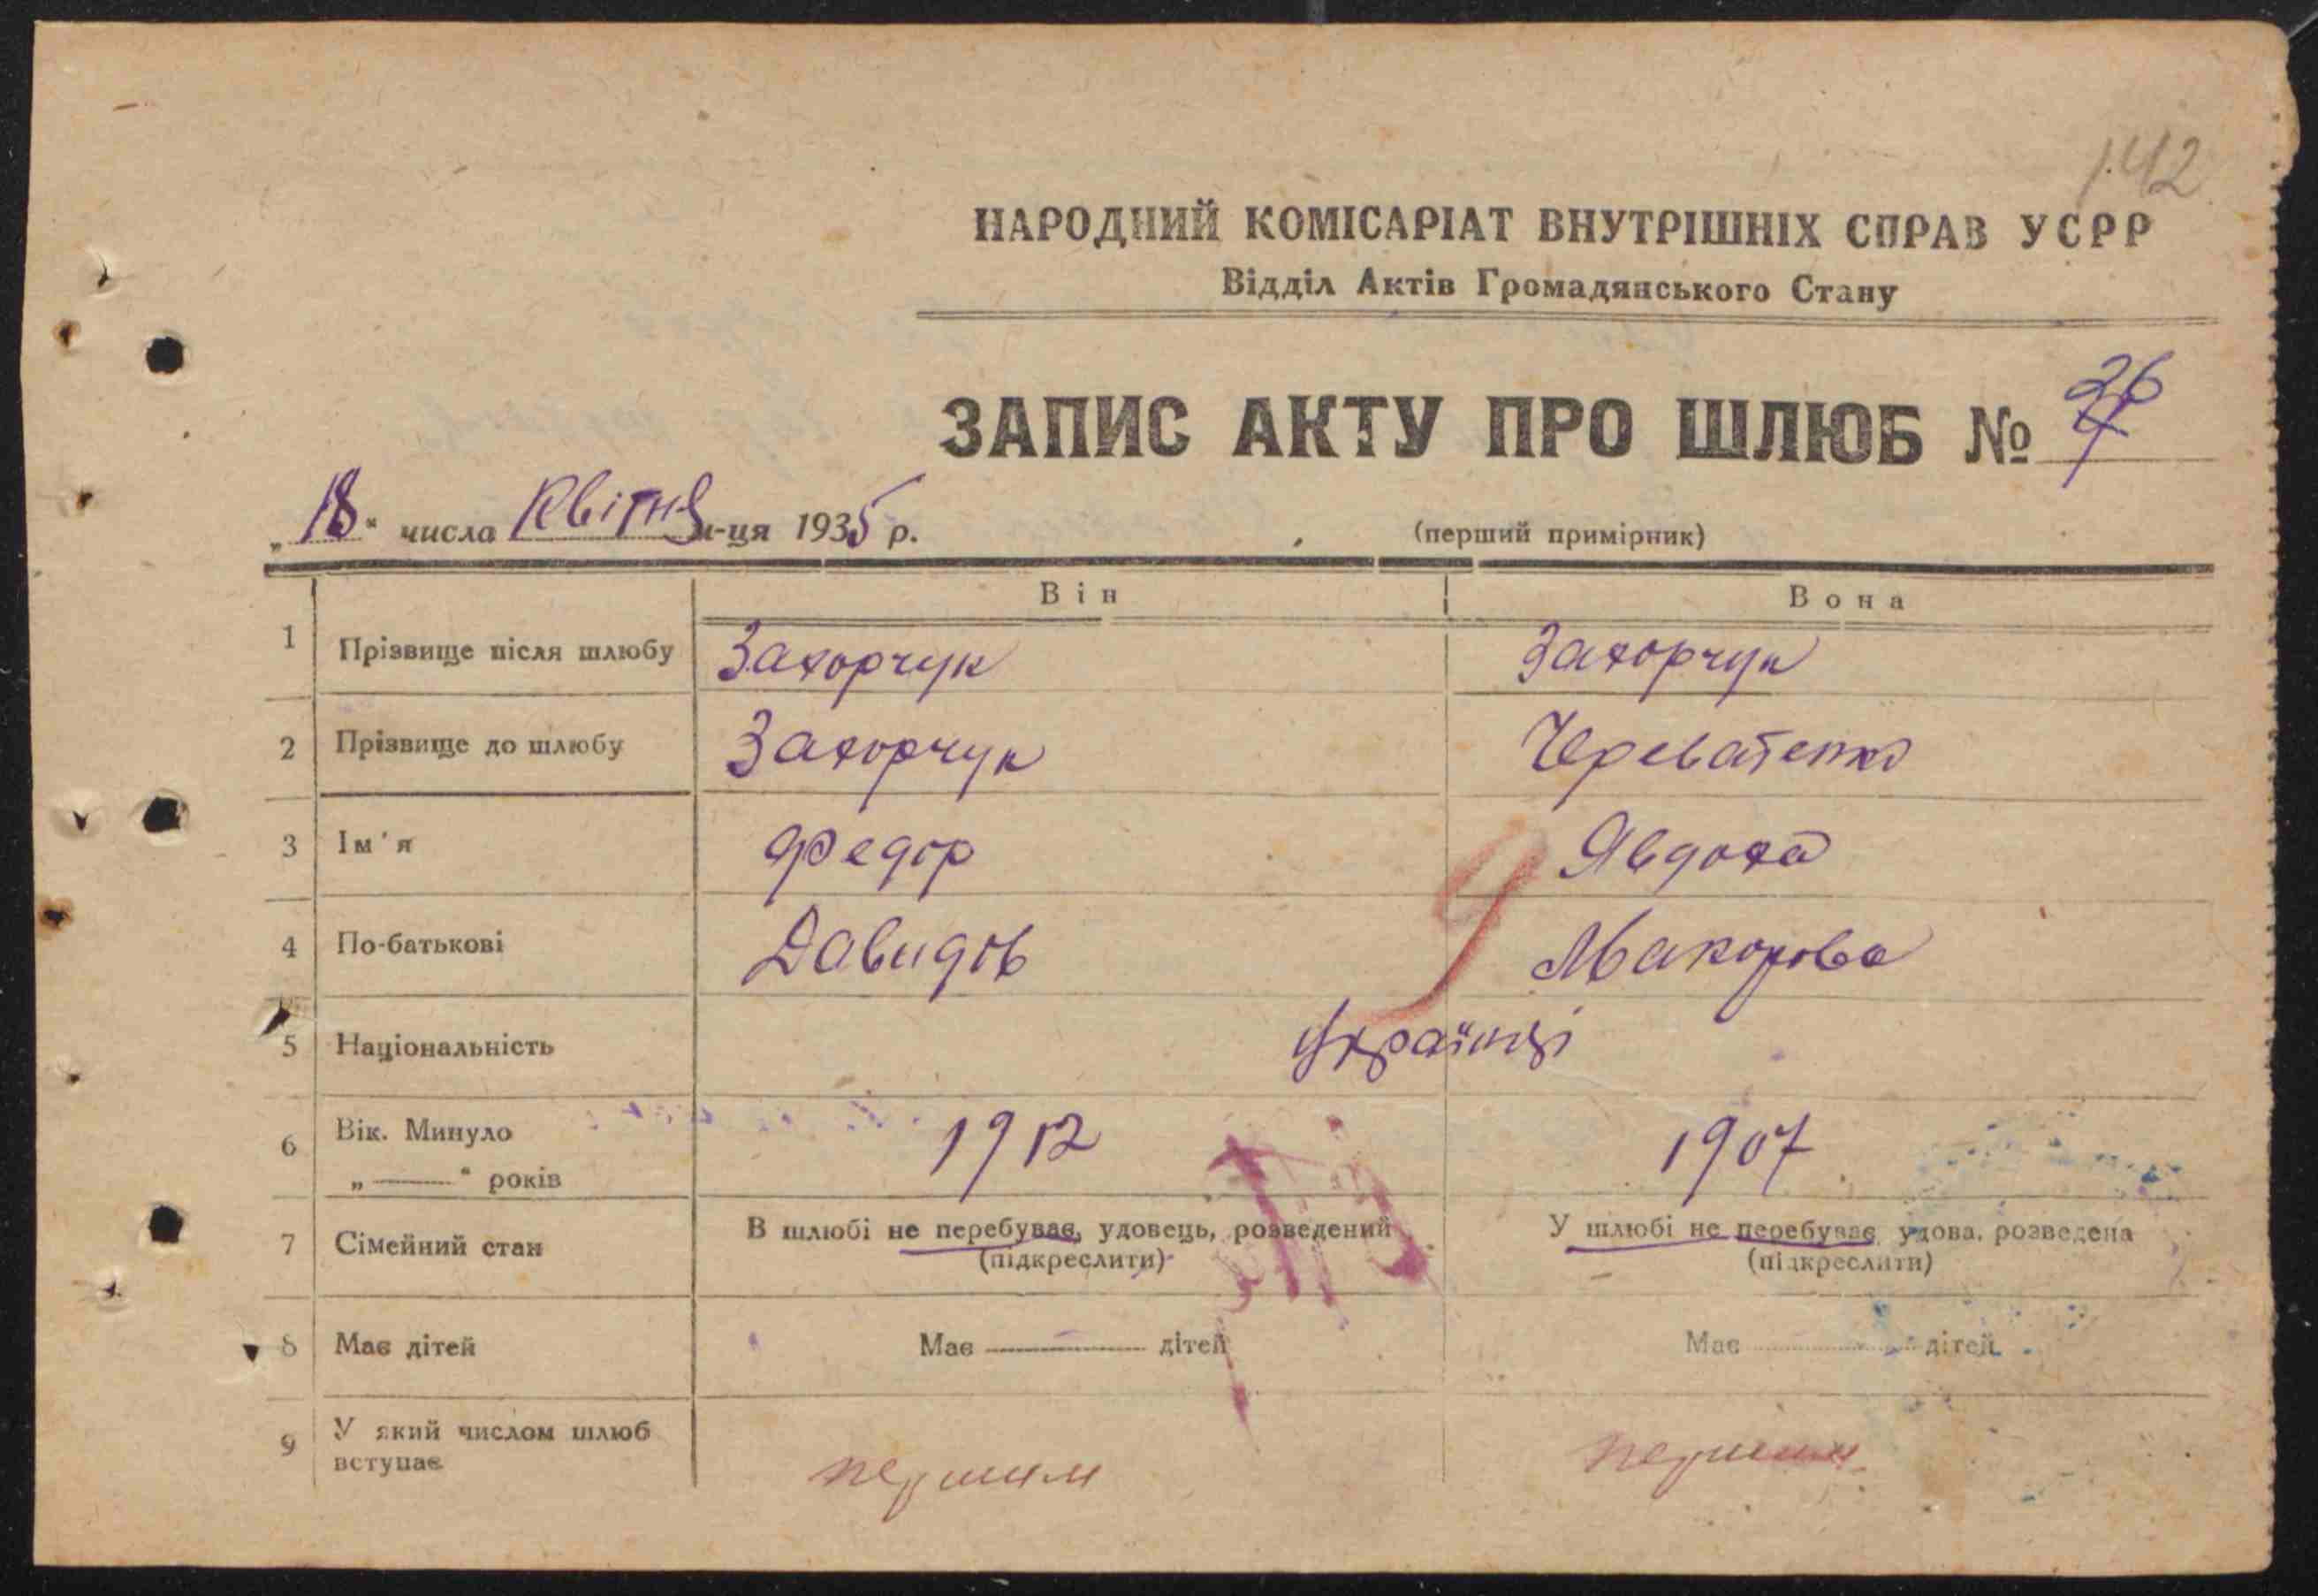 142
НАРОДНИЙ КОМІСАРІАТ ВНУТРІШНІХ СПРАВ УСРР
Відділ Актів Громадянського Стану
ЗАПИС АКТУ ПРО ШЛЮБ № 26
„18“ числа Квітня м-ця 1935 р. (перший примірник)
Він Вона
1 Прізвище після шлюбу Захорчук Захорчук
2 Прізвище до шлюбу Захорчук Череватенко
3 Ім'я Федір Явдоха
4 По-батькові Давидів Макорова
5 Національність Українці
6 Вік. Минуло 1912 1907
„ “ років
7 Сімейний стан В шлюбі не перебуває, удовець, розведений У шлюбі не перебуває, удова, розведена
(підкреслити) (підкреслити)
8 Має дітей Має — дітей Має дітей
9 У який числом шлюб першим першим
вступає